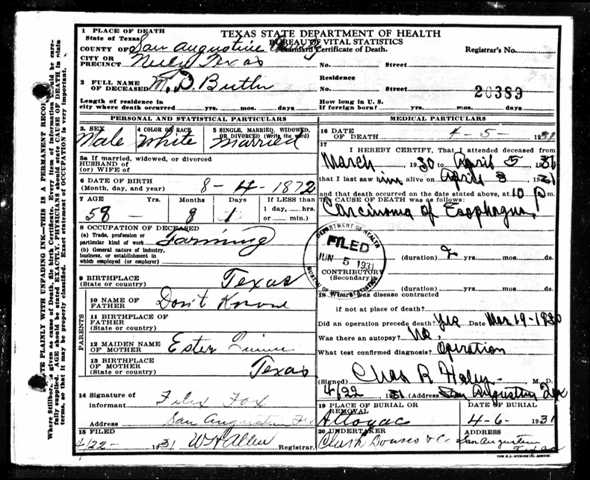 1 PLACE OF DEATH
State of Texas,
TEXAS STATE DEPARTMENT OF HEALTH
BUREAU OF VITAL STATISTICS
COUNTY OF San Augustine
Standard Certificate of Death.
Registrar's No.
CITY OR
PRECINCT Texas
No. Street
2 FULL NAME
OF DECEASED M. D. Butler
Residence
No. Street
20389
Length of residence in
city where death occurred yrs. mos. days
How long in U. S.
if of foreign birth? yrs. mos. days
PERSONAL AND STATISTICAL PARTICULARS
MEDICAL PARTICULARS
3 SEX
Male
4 COLOR OR RACE
White
5 SINGLE, MARRIED, WIDOWED,
OR DIVORCED (write the word)
Married
5a If married, widowed, or divorced
HUSBAND OF
(or) WIFE OF
6 DATE OF BIRTH
(Month, day, and year) 8-4-1872
7 AGE Years Months Days If LESS than
1 day, hrs.
or min.
58 8 1
8 OCCUPATION OF DECEASED
(a) Trade, profession, or
particular kind of work Farming
(b) General nature of industry,
business, or establishment in
which employed (or employer)
9 BIRTHPLACE
(State or country) Texas
PARENTS
10 NAME OF
FATHER Don't Know
11 BIRTHPLACE OF
FATHER
(State or country)
12 MAIDEN NAME
OF MOTHER Ester
13 BIRTHPLACE
OF MOTHER
(State or country) Texas
14 Signature of
informant Felix Fox
Address San Augustine
15 FILED
4/22- 1931 W A Allen Registrar.
16 DATE
OF DEATH 4-5- 1931
17
I HEREBY CERTIFY, That I attended deceased from
March 1930 to April 5 1931
that I last saw him alive on April 3 1931
and that death occurred on the date stated above, at 10 P m.
THE CAUSE OF DEATH was as follows:
Carcinoma of Esophagus
(duration) yrs. mos. ds.
CONTRIBUTORY
(Secondary)
(duration) yrs. mos. ds.
DEPARTMENT OF HEALTH
FILED
JUN 5 1931
BUREAU OF VITAL STATISTICS
18 Where was disease contracted
if not at place of death?
Did an operation precede death? Yes Date Mar 19-1930
Was there an autopsy? No.
What test confirmed diagnosis? Operation
(Signed) Chas R Haley M. D.
4/22 1931 (Address) San Augustine Tex
19 PLACE OF BURIAL OR
REMOVAL
Attoyac
DATE OF BURIAL
4-6- 1931
20 UNDERTAKER
Clark Downs & Co
ADDRESS
San Augustine
Texas